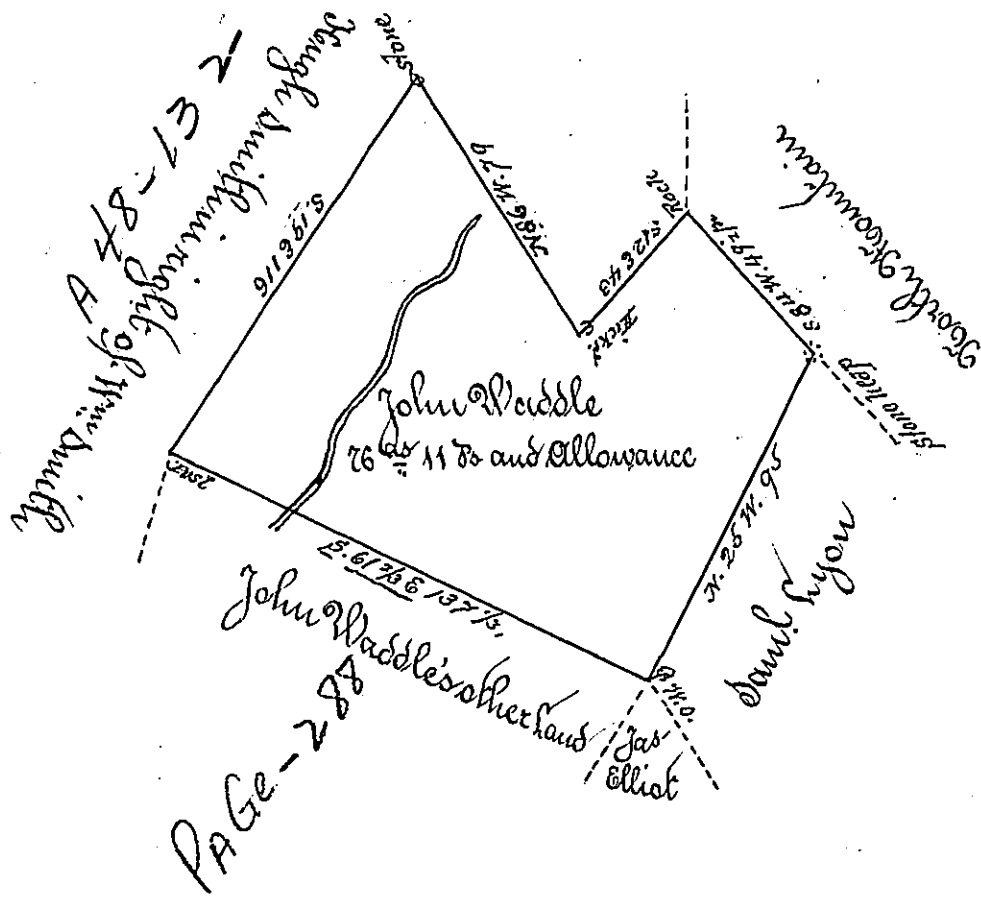 A 48-13 2-
Hugh Smith in right of Wm. Smith
Stone
S. 19 E 116
N 86 W. 79
Hick.y
S 12 E 43
Rock
S. 84 W. 49 1/2
North Mountain
Stone heap
John Waddle
76 as 11 Ps and Allowance
Post
S. 61 2/3 E 137 1/3.
N. 25 W. 95
Saml. Lyon
John Waddle's other Land
B.W.O.
Jas
Elliot
PAGe-288